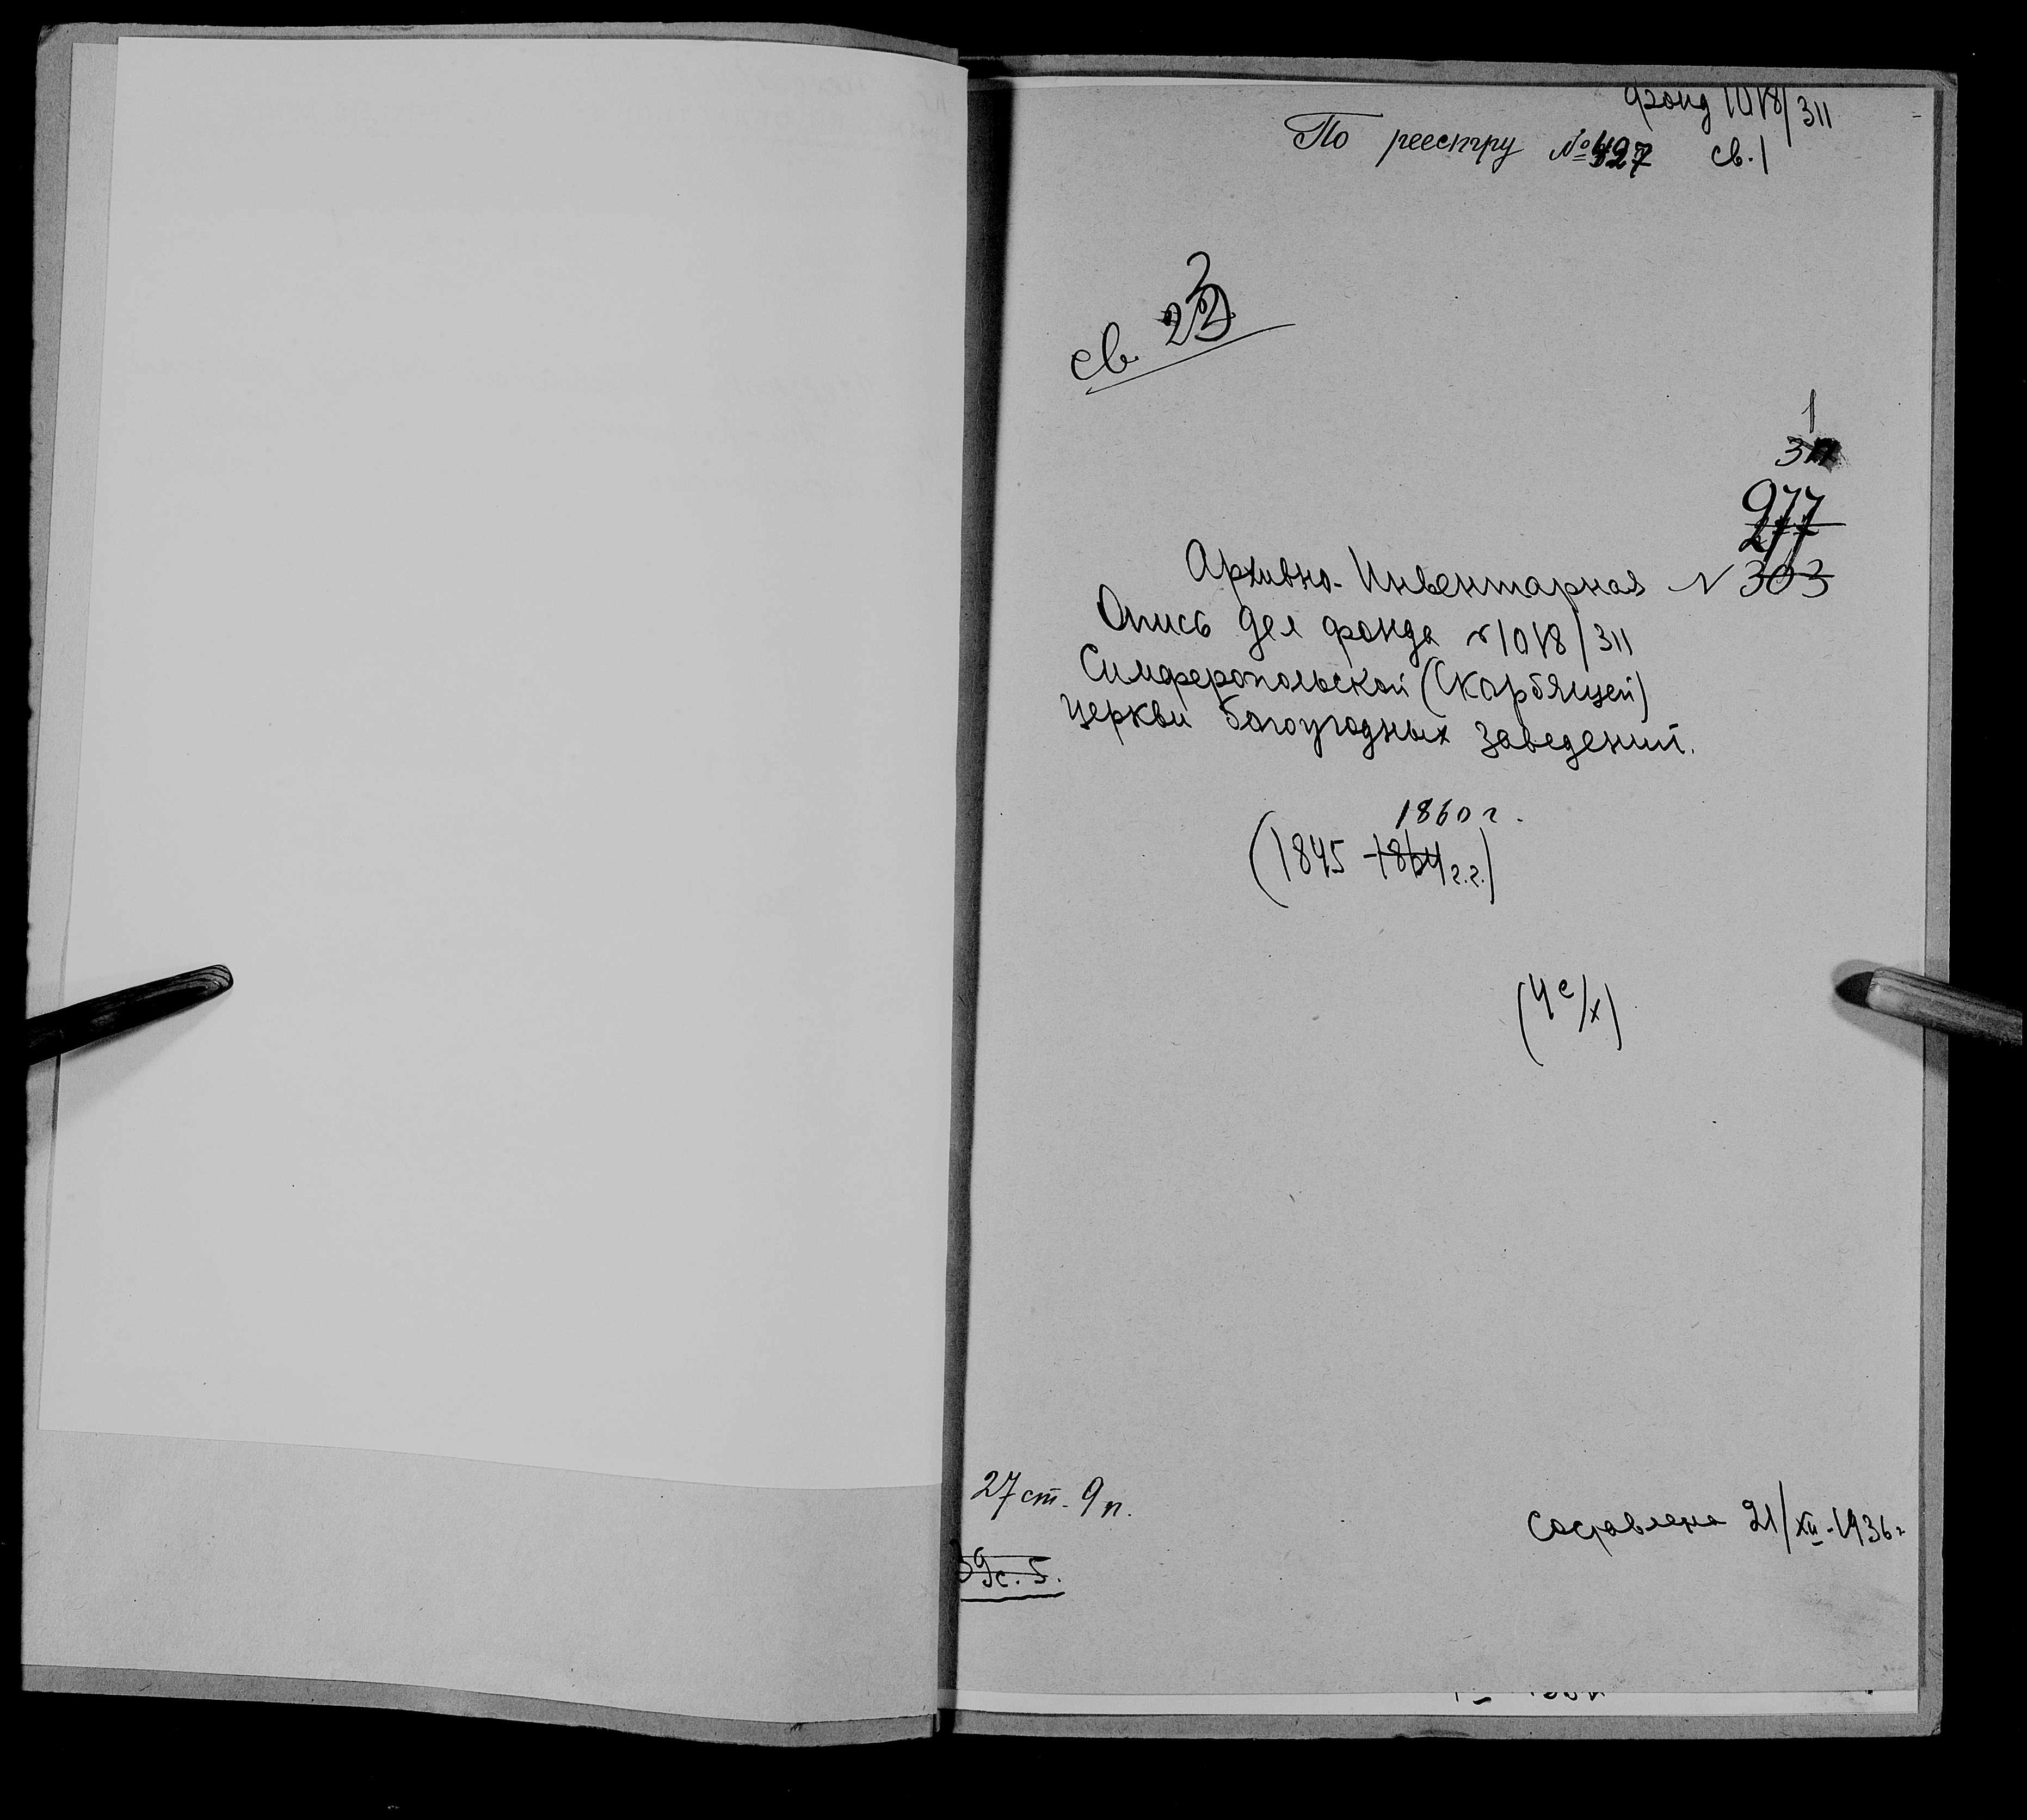 фонд 1018/311
По реестру № 427 св. 1
св. 2
1
977
Архивно-Инвентарная N 303
Опись дел фонда N 1018/311
Симферопольской (Скорбящей)
церкви богоугодных заведений.
1860 г.
(1845 - 1864 г.г.)
(4 е/х)
27 ст. 9 п.
39 с. 5.
Составлена 21/XII-1936 г